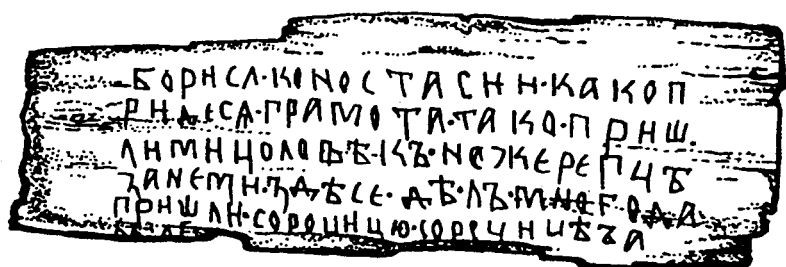 БОРИСА·КОНОСТАСИИ·КАКОП
РИДЕСА·ГРАМОТА·ТАКО·ПРИШ
ЛИМИЦОЛОВѢ·КЪ·НАЖЕРЕПЦѢ
ЗАНЕМИ·ЗДѢСЕ·ДѢ·ЛЪ·МНОГОДА
ПРИШЛИ·СОРОЦИЦЮ·СОРОЦИЦѢЗА